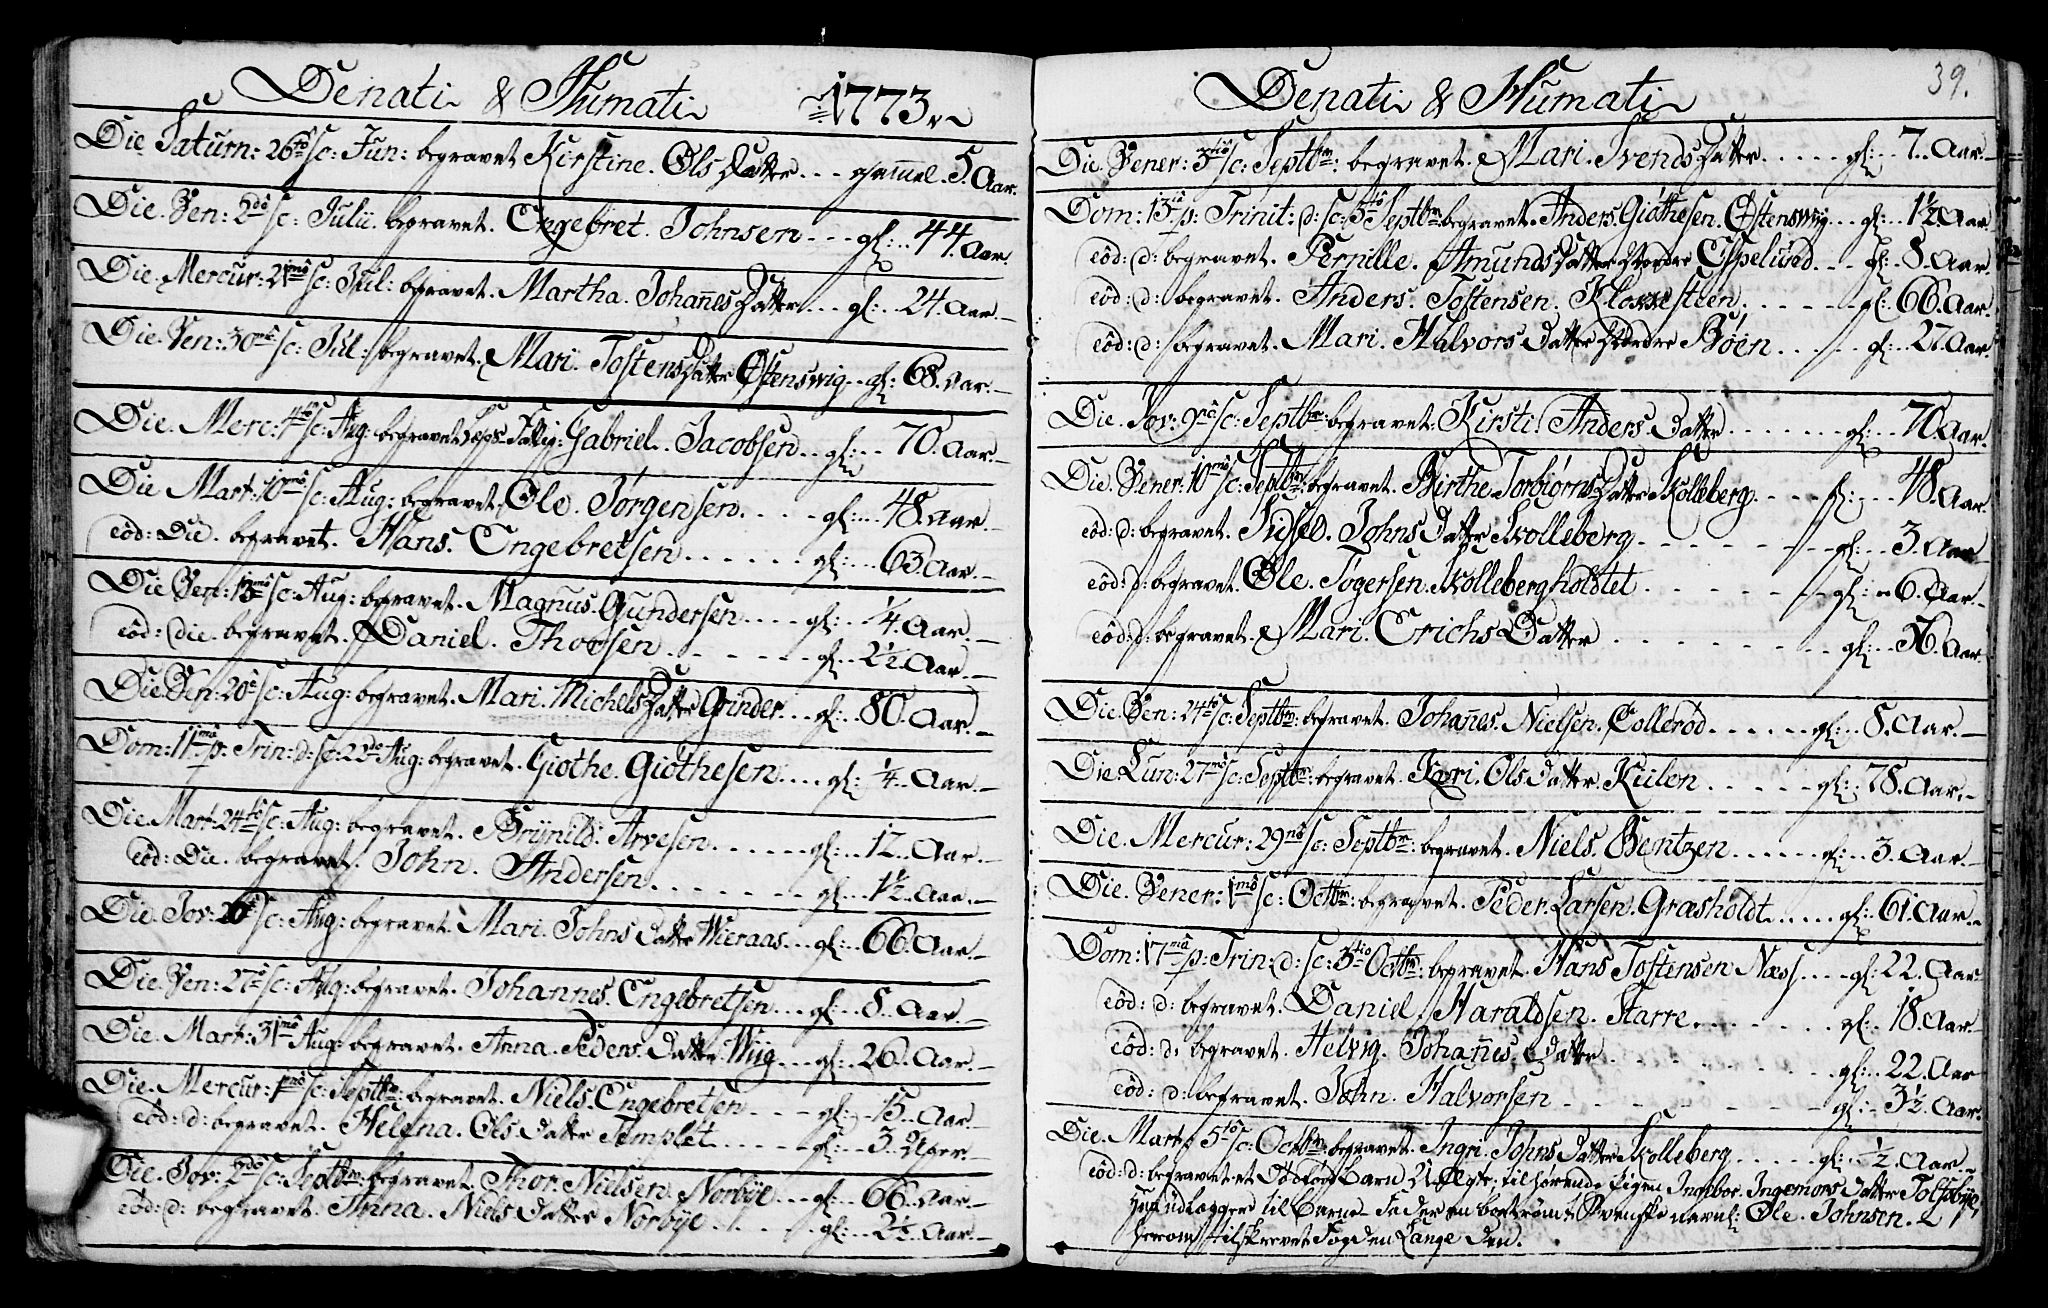 Denati & Humati 1773
Die Saturn: 26to sc: Jun: begravet Kirstine. Ols Datter... gammel. 5. Aar.
Die. Ven: 2do sc: Julii. begravet. Engebret. Johnsen... gl:.. 44. Aar.
Die. Mercur: 21mo sc: Jul: begravet. Martha. Johañes Datter... gl:.. 24. Aar.
Die. Ven: 30mo sc: Jul: begravet. Mari. Tostens Datter Østenswiig.. gl: 68. Aar.
Die. Merc: 4to sc: Aug: begravet Fattig: Gabriel. Jacobsen.. gl:.. 70. Aar.
Die Mart: 10mo sc: Aug: begravet. Ole. Jørgensen.... gl:... 48. Aar.
eôd: Die. begravet. Hans. Engebretsen...... gl:... 63. Aar.
Die Ven: 13mo sc: Aug: begravet. Magnus. Gundersen.... gl:.. 1/4. Aar.
eôd: die. begravet. Daniel. Thorsen....... gl:.. 2½. Aar.
Die. Ven: 20mo sc: Aug: begravet. Mari. Michels Datter Grinder... gl:.. 80. Aar.
Dom: 11mâ p: Trin: d: sc: 22do Aug: begravet. Giøthe. Giøthesen.... gl:.. 1/4. Aar.
Die. Mart: 24to sc: Aug: begravet. Brÿnild. Arvesen...... gl:... 12. Aar.
eôd: Die. begravet. John. Andersen....... gl:... 1½. Aar.
Die. Jov: 26to sc: Aug: begravet. Mari. Johns Datter Wieraas... gl:.. 66. Aar.
Die. Ven: 27mo sc: Aug: begravet. Johannes. Engebretsen... gl:.. 8. Aar.
Die. Mart: 31mo Aug: begravet. Anna. Peders. Datter Wiig... gl:.. 26. Aar.
Die. Mercur: 1mo sc: Septbr: begravet. Niels. Engebretsen.... gl:.. 15. Aar.
eôd: d: begravet. Helena. Ols Datter Templet..... gl:... 3. Uger.
Die. Jov: 2do sc: Septbr: begravet. Thor. Nielsen. Norbÿe... gl:.. 66. Aar.
eôd: d: begravet. Anna. Niels Datter Norbÿe.... gl:... 2½. Aar.
Denati & Humati 39.
Die. Vener: 3tio sc: Septbr: begravet. Mari. Svends Datter..... gl:... 7. Aar.
Dom: 13iâ p: Trinit: d: sc: 5to Septbr begravet. Anders. Giøthesen. Østenswiig... gl:.. 1½. Aar.
eôd: d: begravet. Pernille. Amunds Datter Nordre Espelund... gl:.. 8. Aar.
eôd: d: begravet. Anders. Tostensen. Klossesteen...... gl:. 66. Aar.
eôd: d: begravet. Mari. Halvors Datter Nordre Bøen..... gl:.. 27. Aar.
Die. Jov: 9no sc: Septbr: begravet. Kirsti. Anders. Datter....... gl:... 70. Aar.
Die. Vener: 10mo sc: Septbr: begravet. Birthe. Torbiørns Datter Kolleberg.... gl:... 48. Aar.
eôd: d: begravet. Sidsel. Johns Datter Kolleberg....... gl:... 3. Aar.
eôd: d: begravet. Ole. Togersen. Kollebergholdtet....... gl:.. 6. Aar.
eôd: d: begravet. Mari. Erichs Datter........ gl:... 56. Aar.
Die. Ven: 24to sc: Septbr: begravet. Johañes. Nielsen. Collerød...... gl:... 8. Aar.
Die. Lun: 27mo sc: Septbr: begravet. Kari. Ols Datter. Kiilen..... gl:. 78. Aar.
Die. Mercur: 29no sc: Septbr: begravet. Niels. Bentzen...... gl:.. 3. Aar.
Die. Vener: 1mo sc: Octbr: begravet. Peder. Larsen. Grasholdt..... gl:. 61. Aar.
Dom: 17mâ p: Trin: d: sc: 3tio Octbr: begravet. Hans Tostensen Næss.... gl:. 22. Aar
eôd: d: begravet. Daniel. Haraldsen. Starre....... gl:. 18. Aar
eôd: d: begravet. Helvig. Johañes. Datter....... gl:.. 22. Aar
eôd: d: begravet. John. Halvorsen........ gl:.. 3½. Aar.
Die. Mart: 5to sc: Octbr: begravet. Ingri. Johns Datter Kolleberg..... gl:.. ½. Aar.
eôd: d: begravet et dødfød Barn Uægte, tilhørende Pigen Ingebor. Ingemors Datter Tolfsbÿe,
Hun udlagde til Barne-Fader en bortrømt Svenske navnl: Ole. Johnsen.
herom tilskrevet Fogden Lange den.